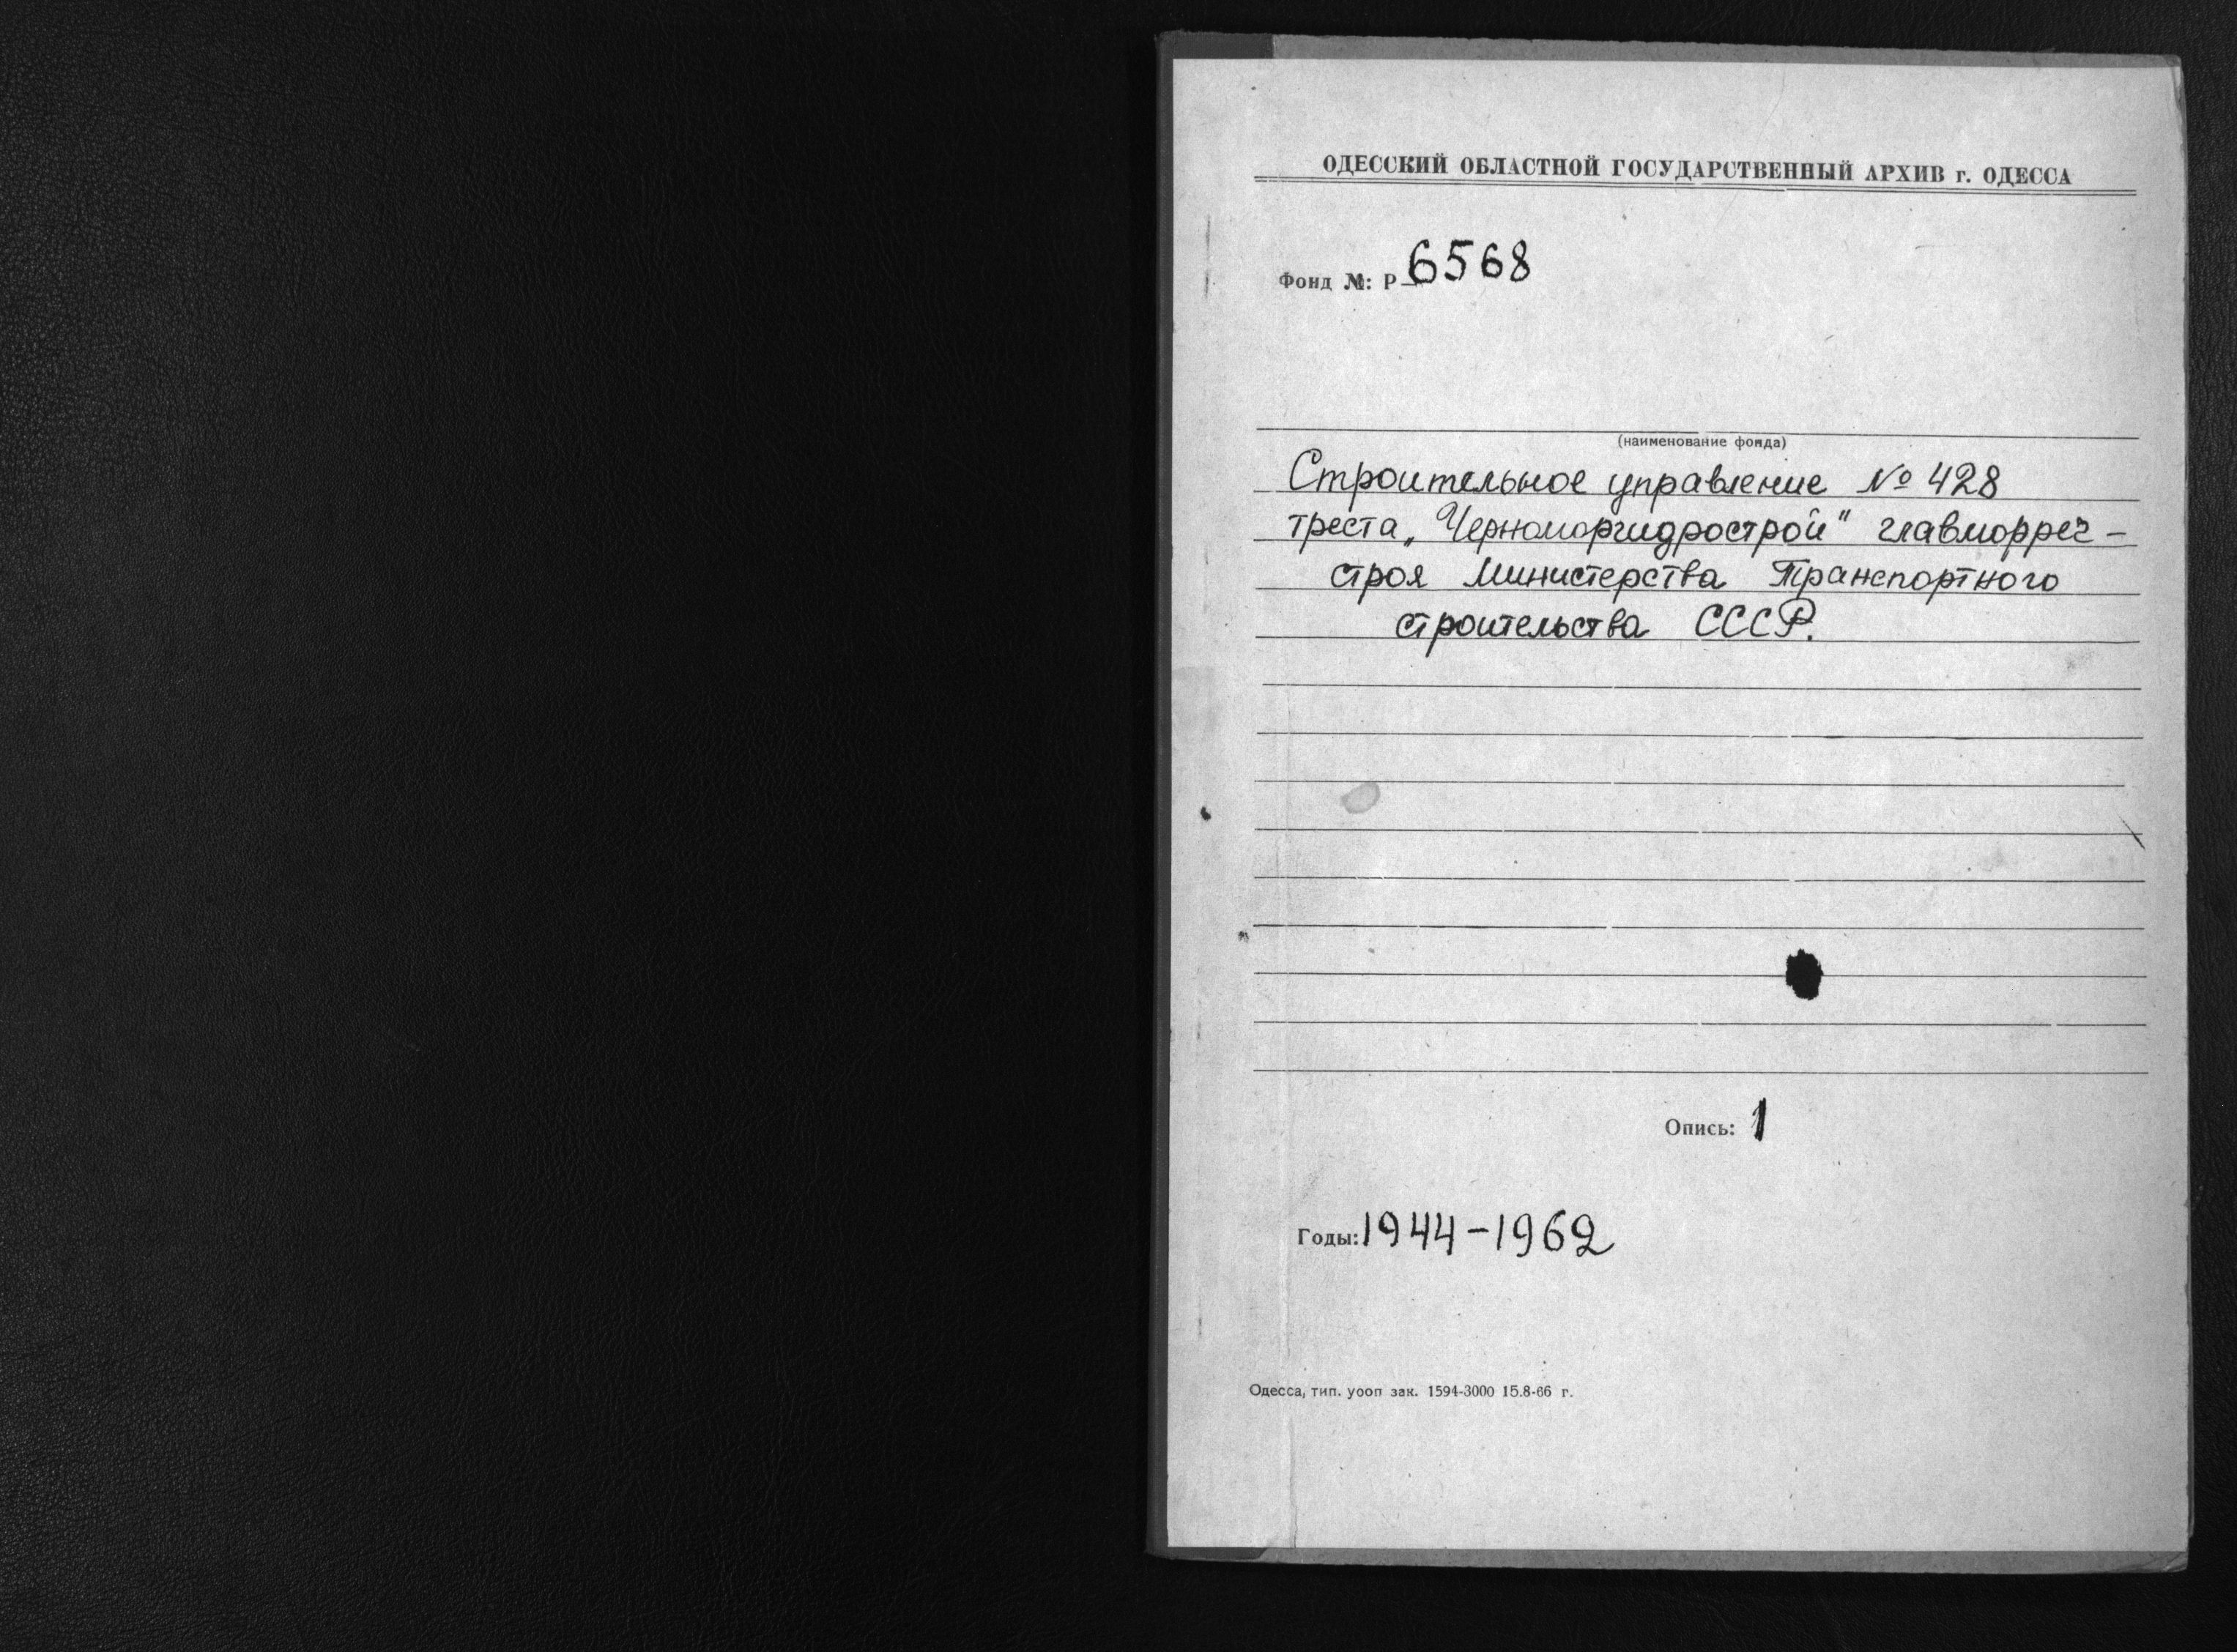 ОДЕССКИЙ ОБЛАСТНОЙ ГОСУДАРСТВЕННЫЙ АРХИВ г. ОДЕССА
Фонд №: Р-6568
(наименование фонда)
Строительное управление № 428
треста „Черноморгидрострой" главморреч-
строя Министерства Транспортного
строительства СССР.
Опись: 1
Годы: 1944-1962
Одесса, тип. уооп зак. 1594-3000 15.8-66 г.